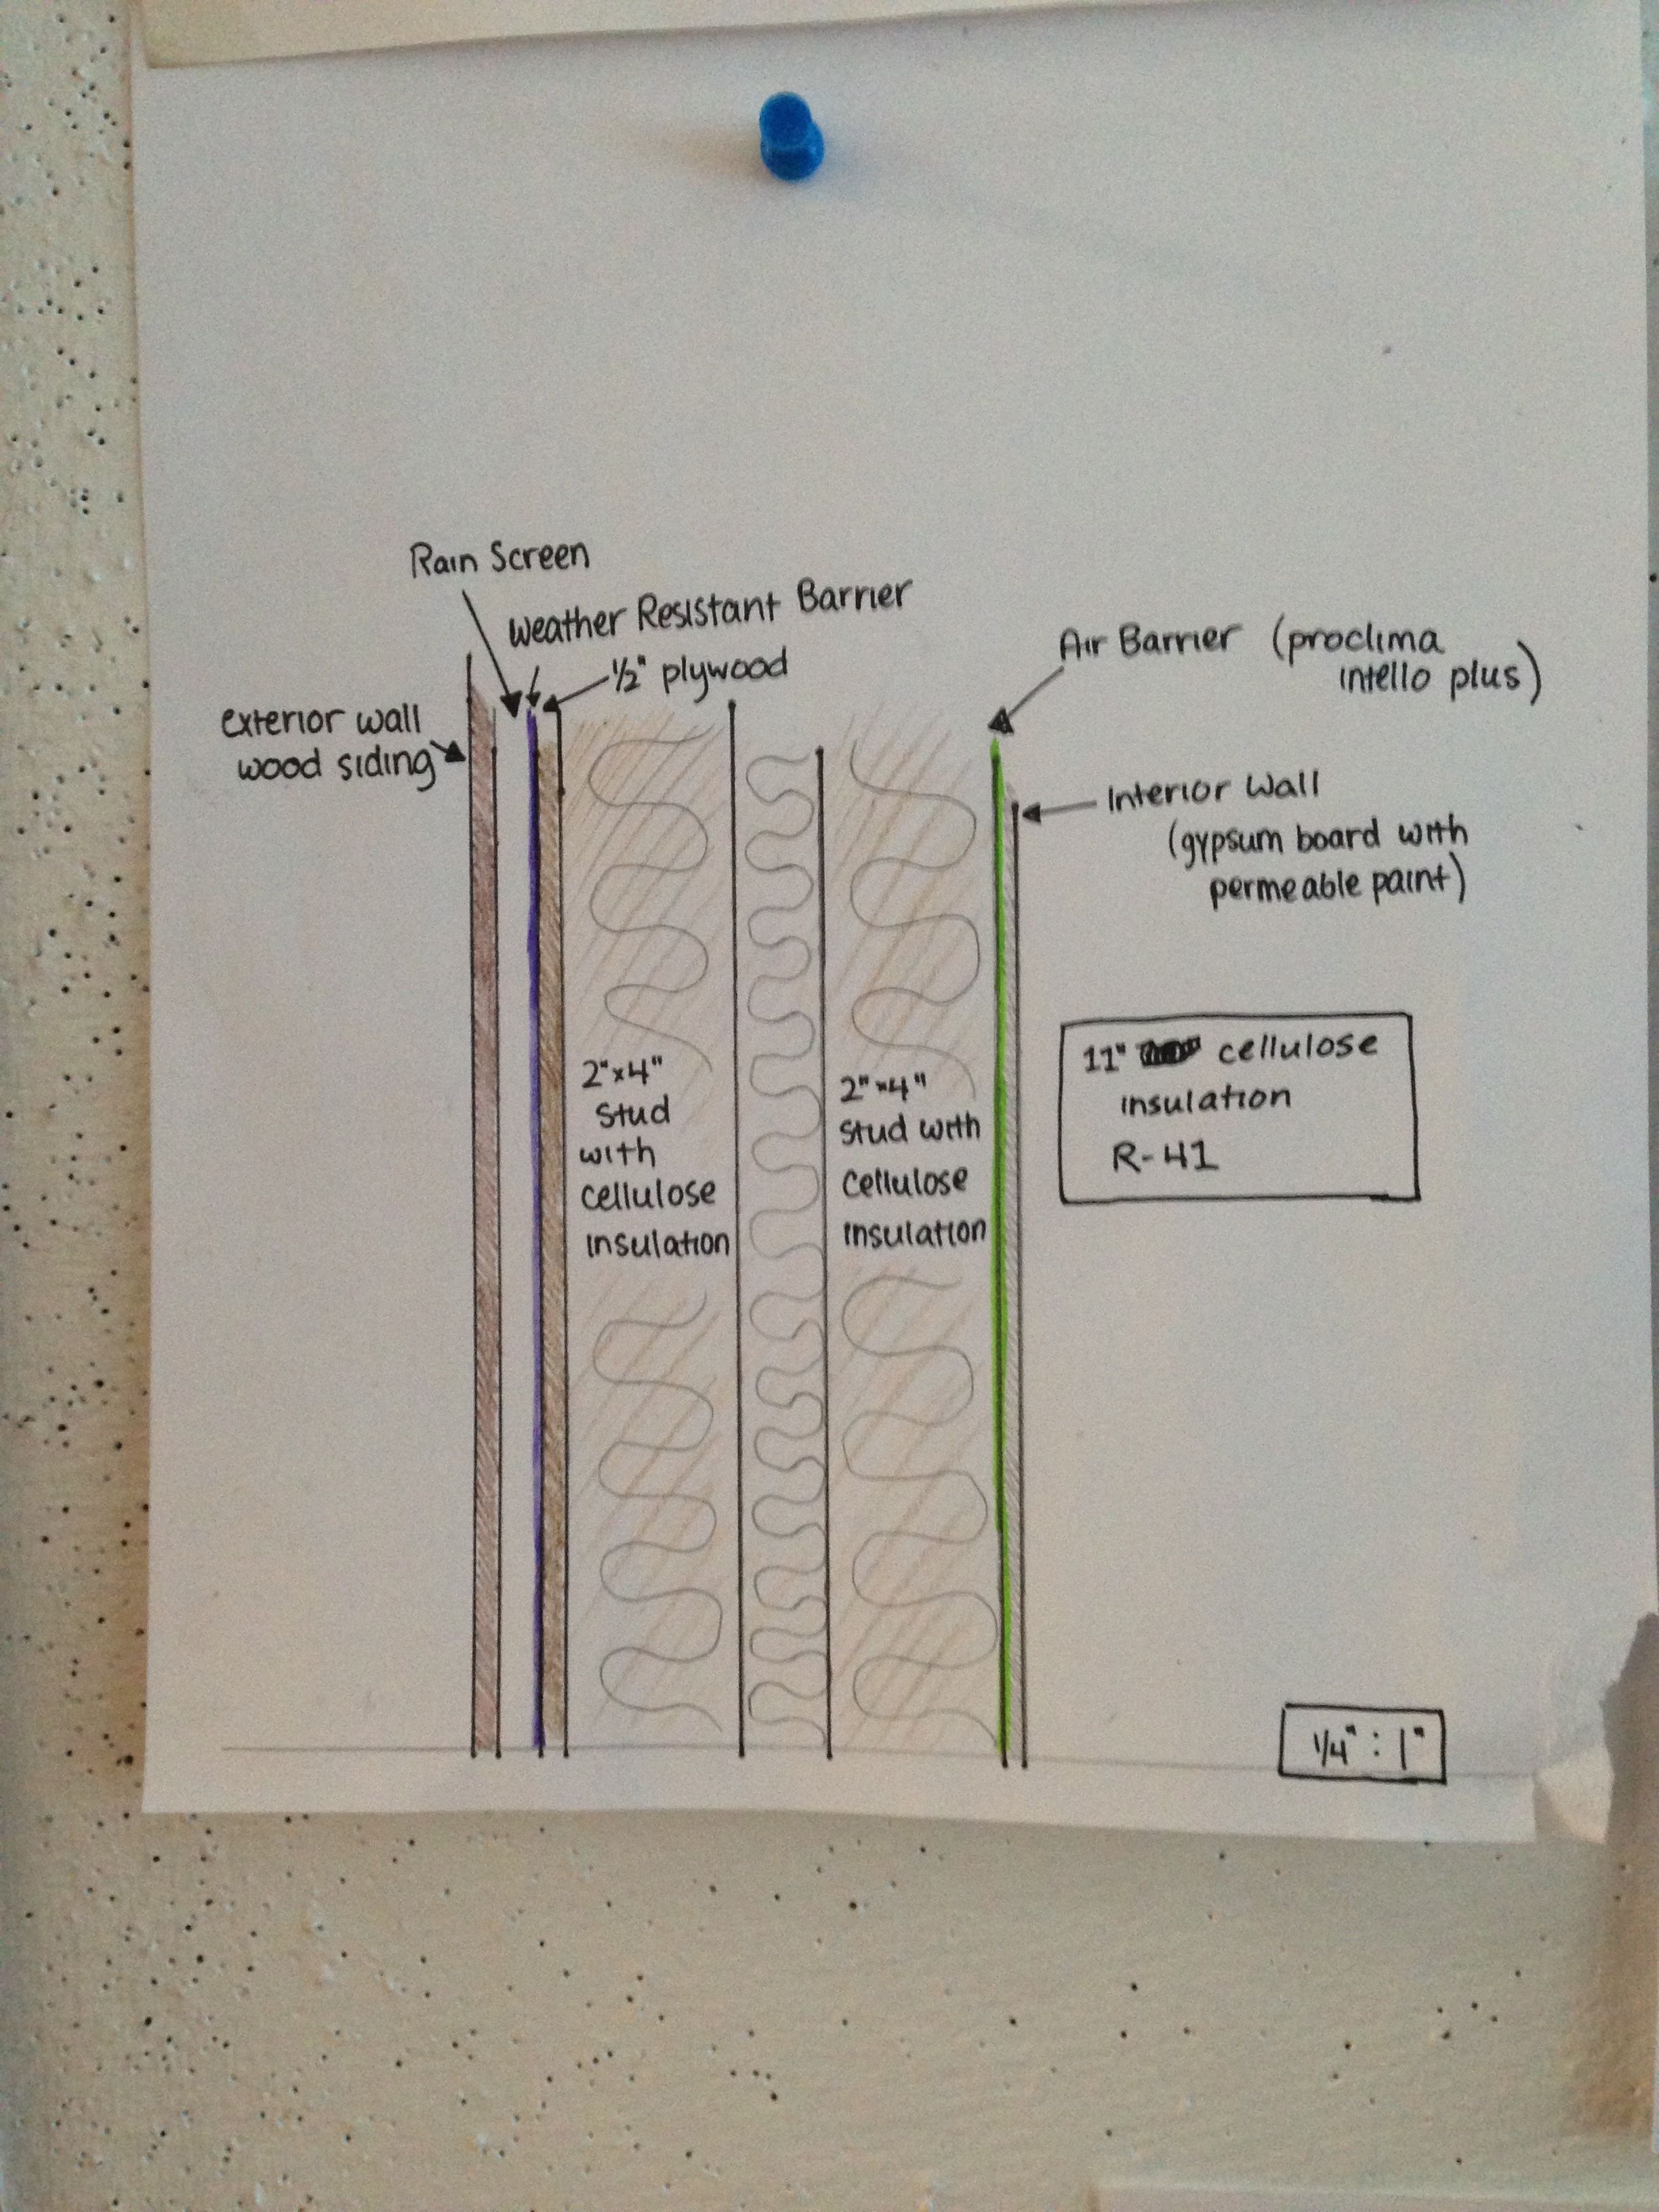 Rain Screen
Weather Resistant Barrier
1/2" plywood
exterior wall
wood siding
Air Barrier (proclima
intello plus)
Interior Wall
(gypsum board with
permeable paint)
2"x4"
Stud
with
cellulose
insulation
2"x4"
Stud with
cellulose
insulation
11" cellulose
insulation
R-41
1/4" : 1"